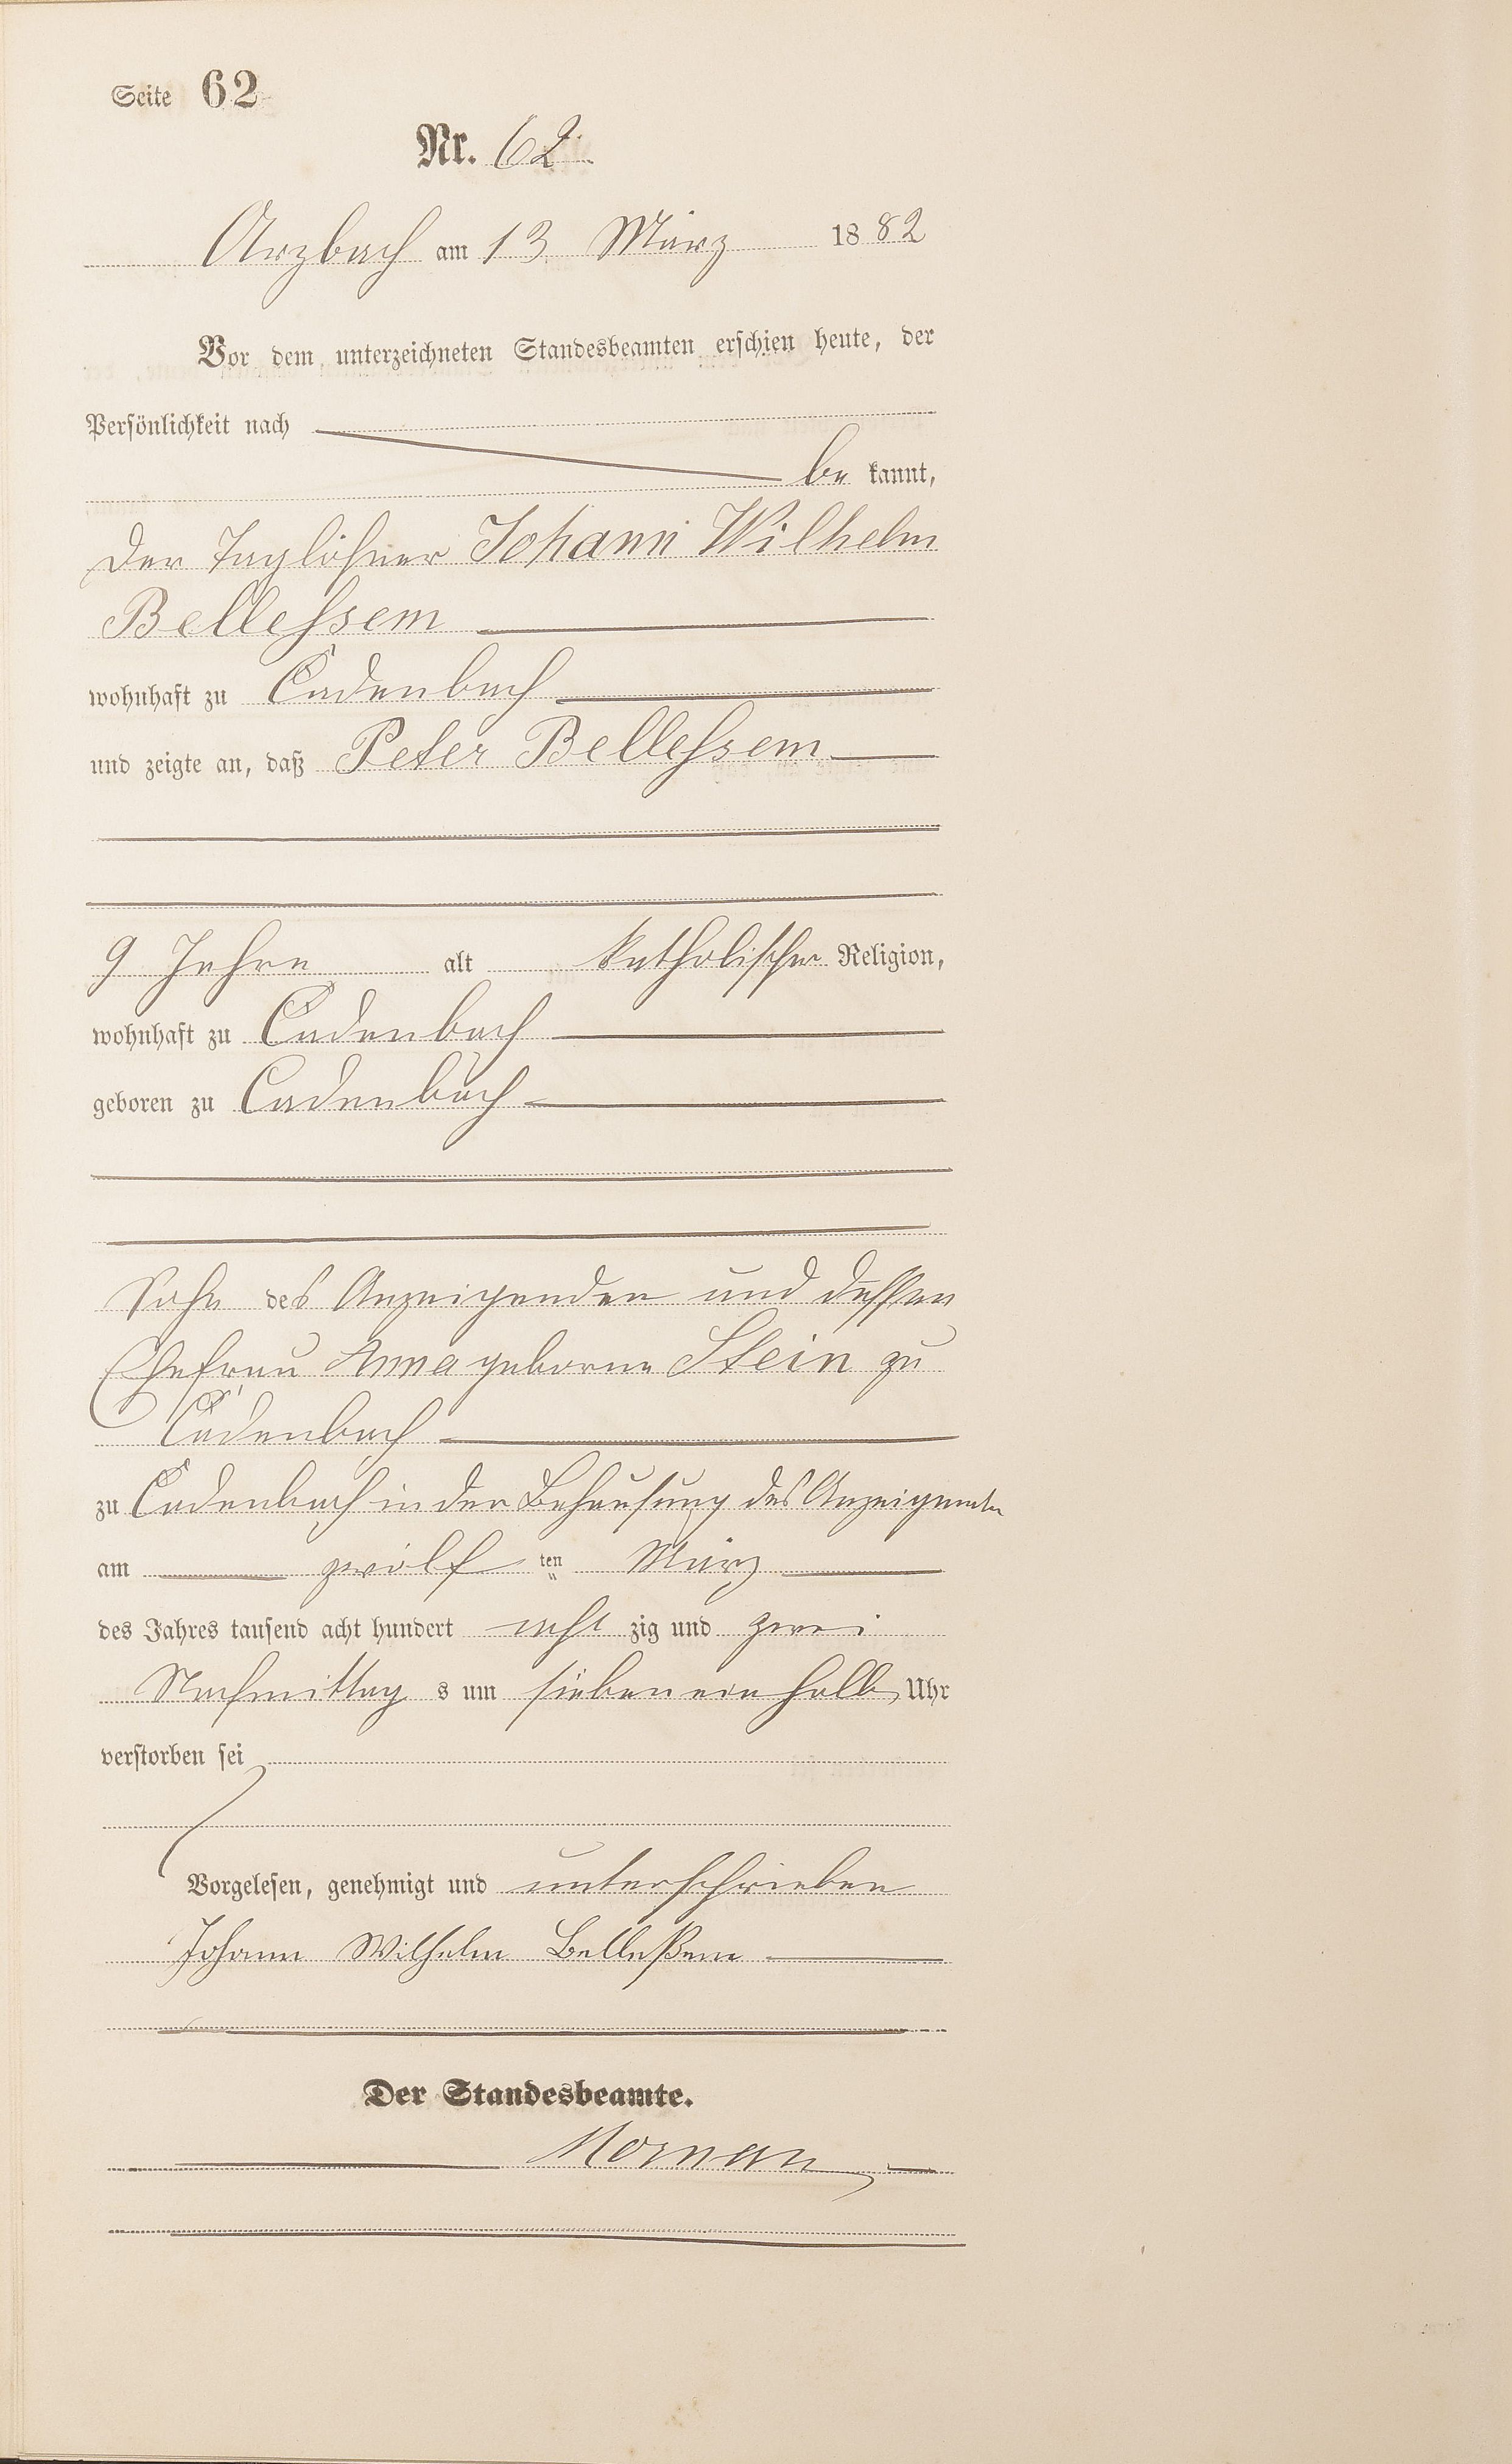 Seite 62
Nr. 62
Arzbach am 13 März 1882
Vor dem unterzeichneten Standesbeamten erschien heute, der
Persönlichkeit nach
be kannt,
der Taglöhner Johann Wilhelm
Bellessem
wohnhaft zu Cadenbach
und zeigte an, daß Peter Bellessem
9 Jahre alt katholischer Religion,
wohnhaft zu Cadenbach
geboren zu Cadenbach
Sohn des Anzeigenden und dessen
Ehefrau Anna geborne Stein zu
Cadenbach
zu Cadenbach in der Behausung des Anzeigenden
am zwölf ten März
des Jahres tausend acht hundert acht zig und zwei
Nachmittag s um sieben ein halb Uhr
verstorben sei
Vorgelesen, genehmigt und unterschrieben
Johann Wilhelm Belleßem
Der Standesbeamte.